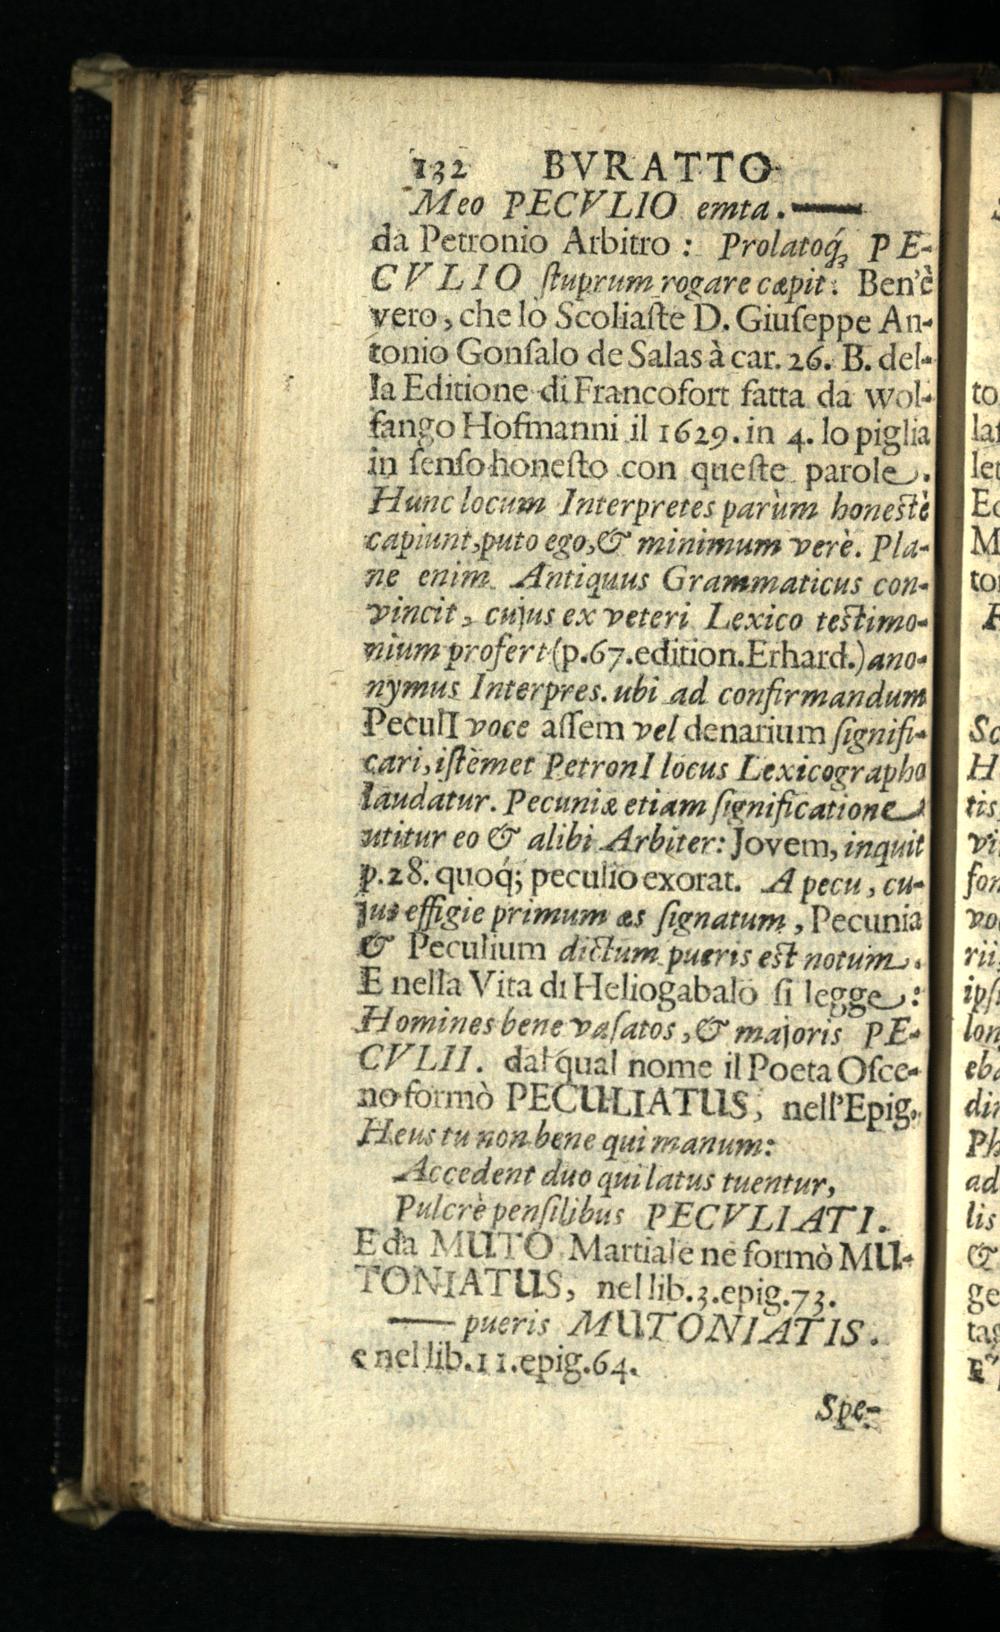 132 BVRATTO
Meo PECVLIO emta.——
da Petronio Arbitro : Prolatoq́ꝫ PE-
CVLIO ſtuprum rogare cæpit. Ben'è
vero, che lo Scoliaſte D. Giuſeppe An-
tonio Gonſalo de Salas à car. 26. B. del-
la Editione di Francofort fatta da wol-
fango Hofmanni il 1629. in 4. lo piglia
in ſenſo honeſto con queſte parole.
Hunc locum Interpretes parùm honeſtè
capiunt, puto ego, & minimum verè. Pla-
ne enim Antiquus Grammaticus con-
vincit, cujus ex veteri Lexico teſtimo-
nium profert (p.67.edition.Erhard.) ano-
nymus Interpres. ubi ad confirmandum
PeculI voce aſſem vel denarium ſignifi-
cari, iſtèmet PetronI locus Lexicographo
laudatur. Pecuniæ etiam ſignificatione
utitur eo & alibi Arbiter: Jovem, inquit
p.28. quoq́; peculio exorat. A pecu, cu-
jus effigie primum æs ſignatum, Pecunia
& Peculium dictum pueris eſt notum.
E nella Vita di Heliogabalo ſi legge:
Homines bene vaſatos, & majoris PE-
CVLII. dal qual nome il Poeta Oſce-
no formò PECULIATUS, nell'Epig.
Heus tu non bene qui manum:
Accedent duo qui latus tuentur,
Pulcrè penſilibus PECVLIATI.
E da MUTO Martiale ne formò MU-
TONIATUS, nel lib.3.epig.73.
—— pueris MUTONIATIS.
e nel lib.11.epig.64.
Spe-
to
laſ
let
Ec
M
tor
Sc
H
tis
vi
fon
vo
rii
ipſ
lon
eba
din
Ph
ad
lis
&
ge
tag